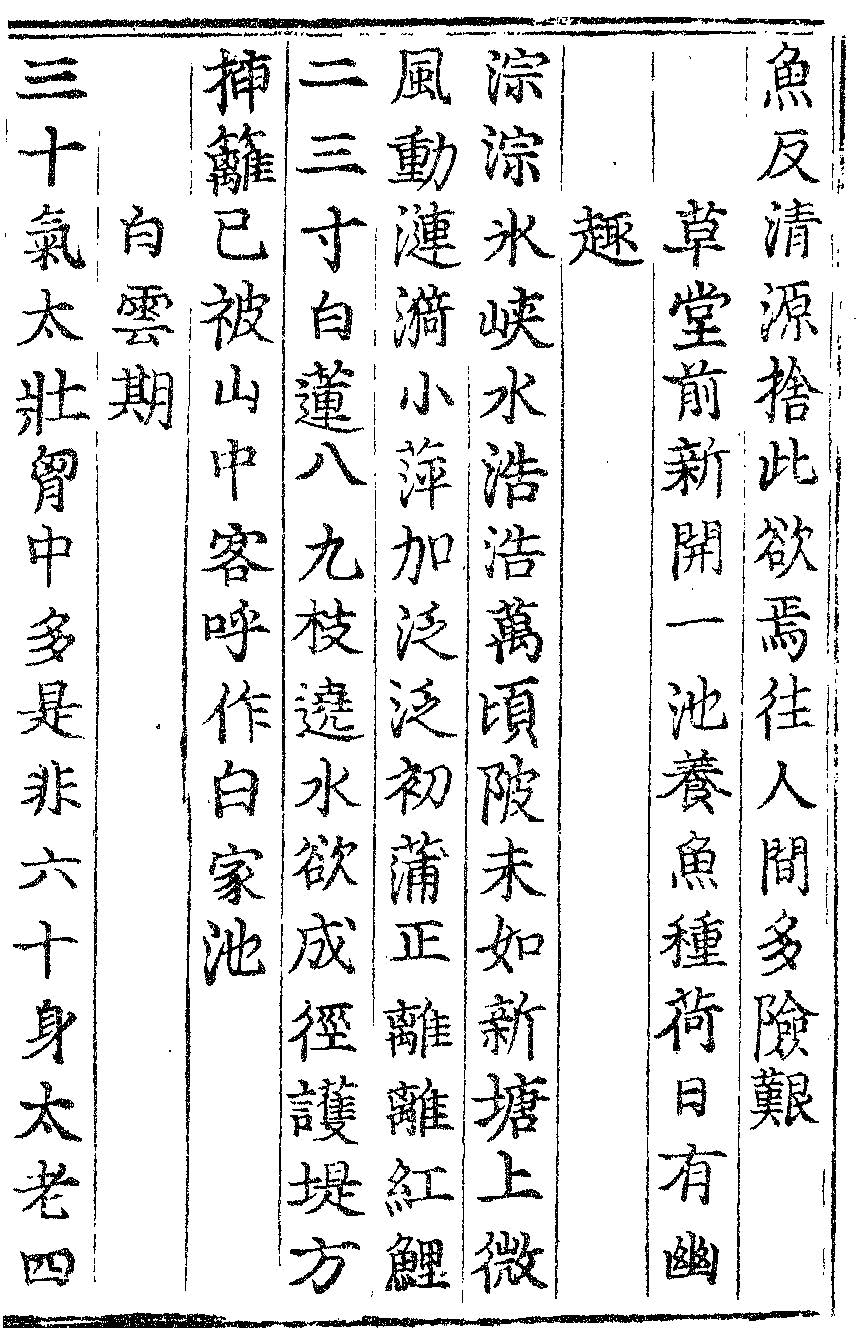 魚反清源捨此欲焉往人間多險艱
草堂前新開一池養魚種荷日有幽
趣
淙淙氷峡水浩浩萬頃陂未如新塘上微
風動漣漪小萍加泛泛初蒲正離離紅鯉
二三寸白蓮八九枝遶水欲成徑護堤方
揷籬已被山中客呼作白家池
白雲期
三十氣太壯胷中多是非六十身太老四